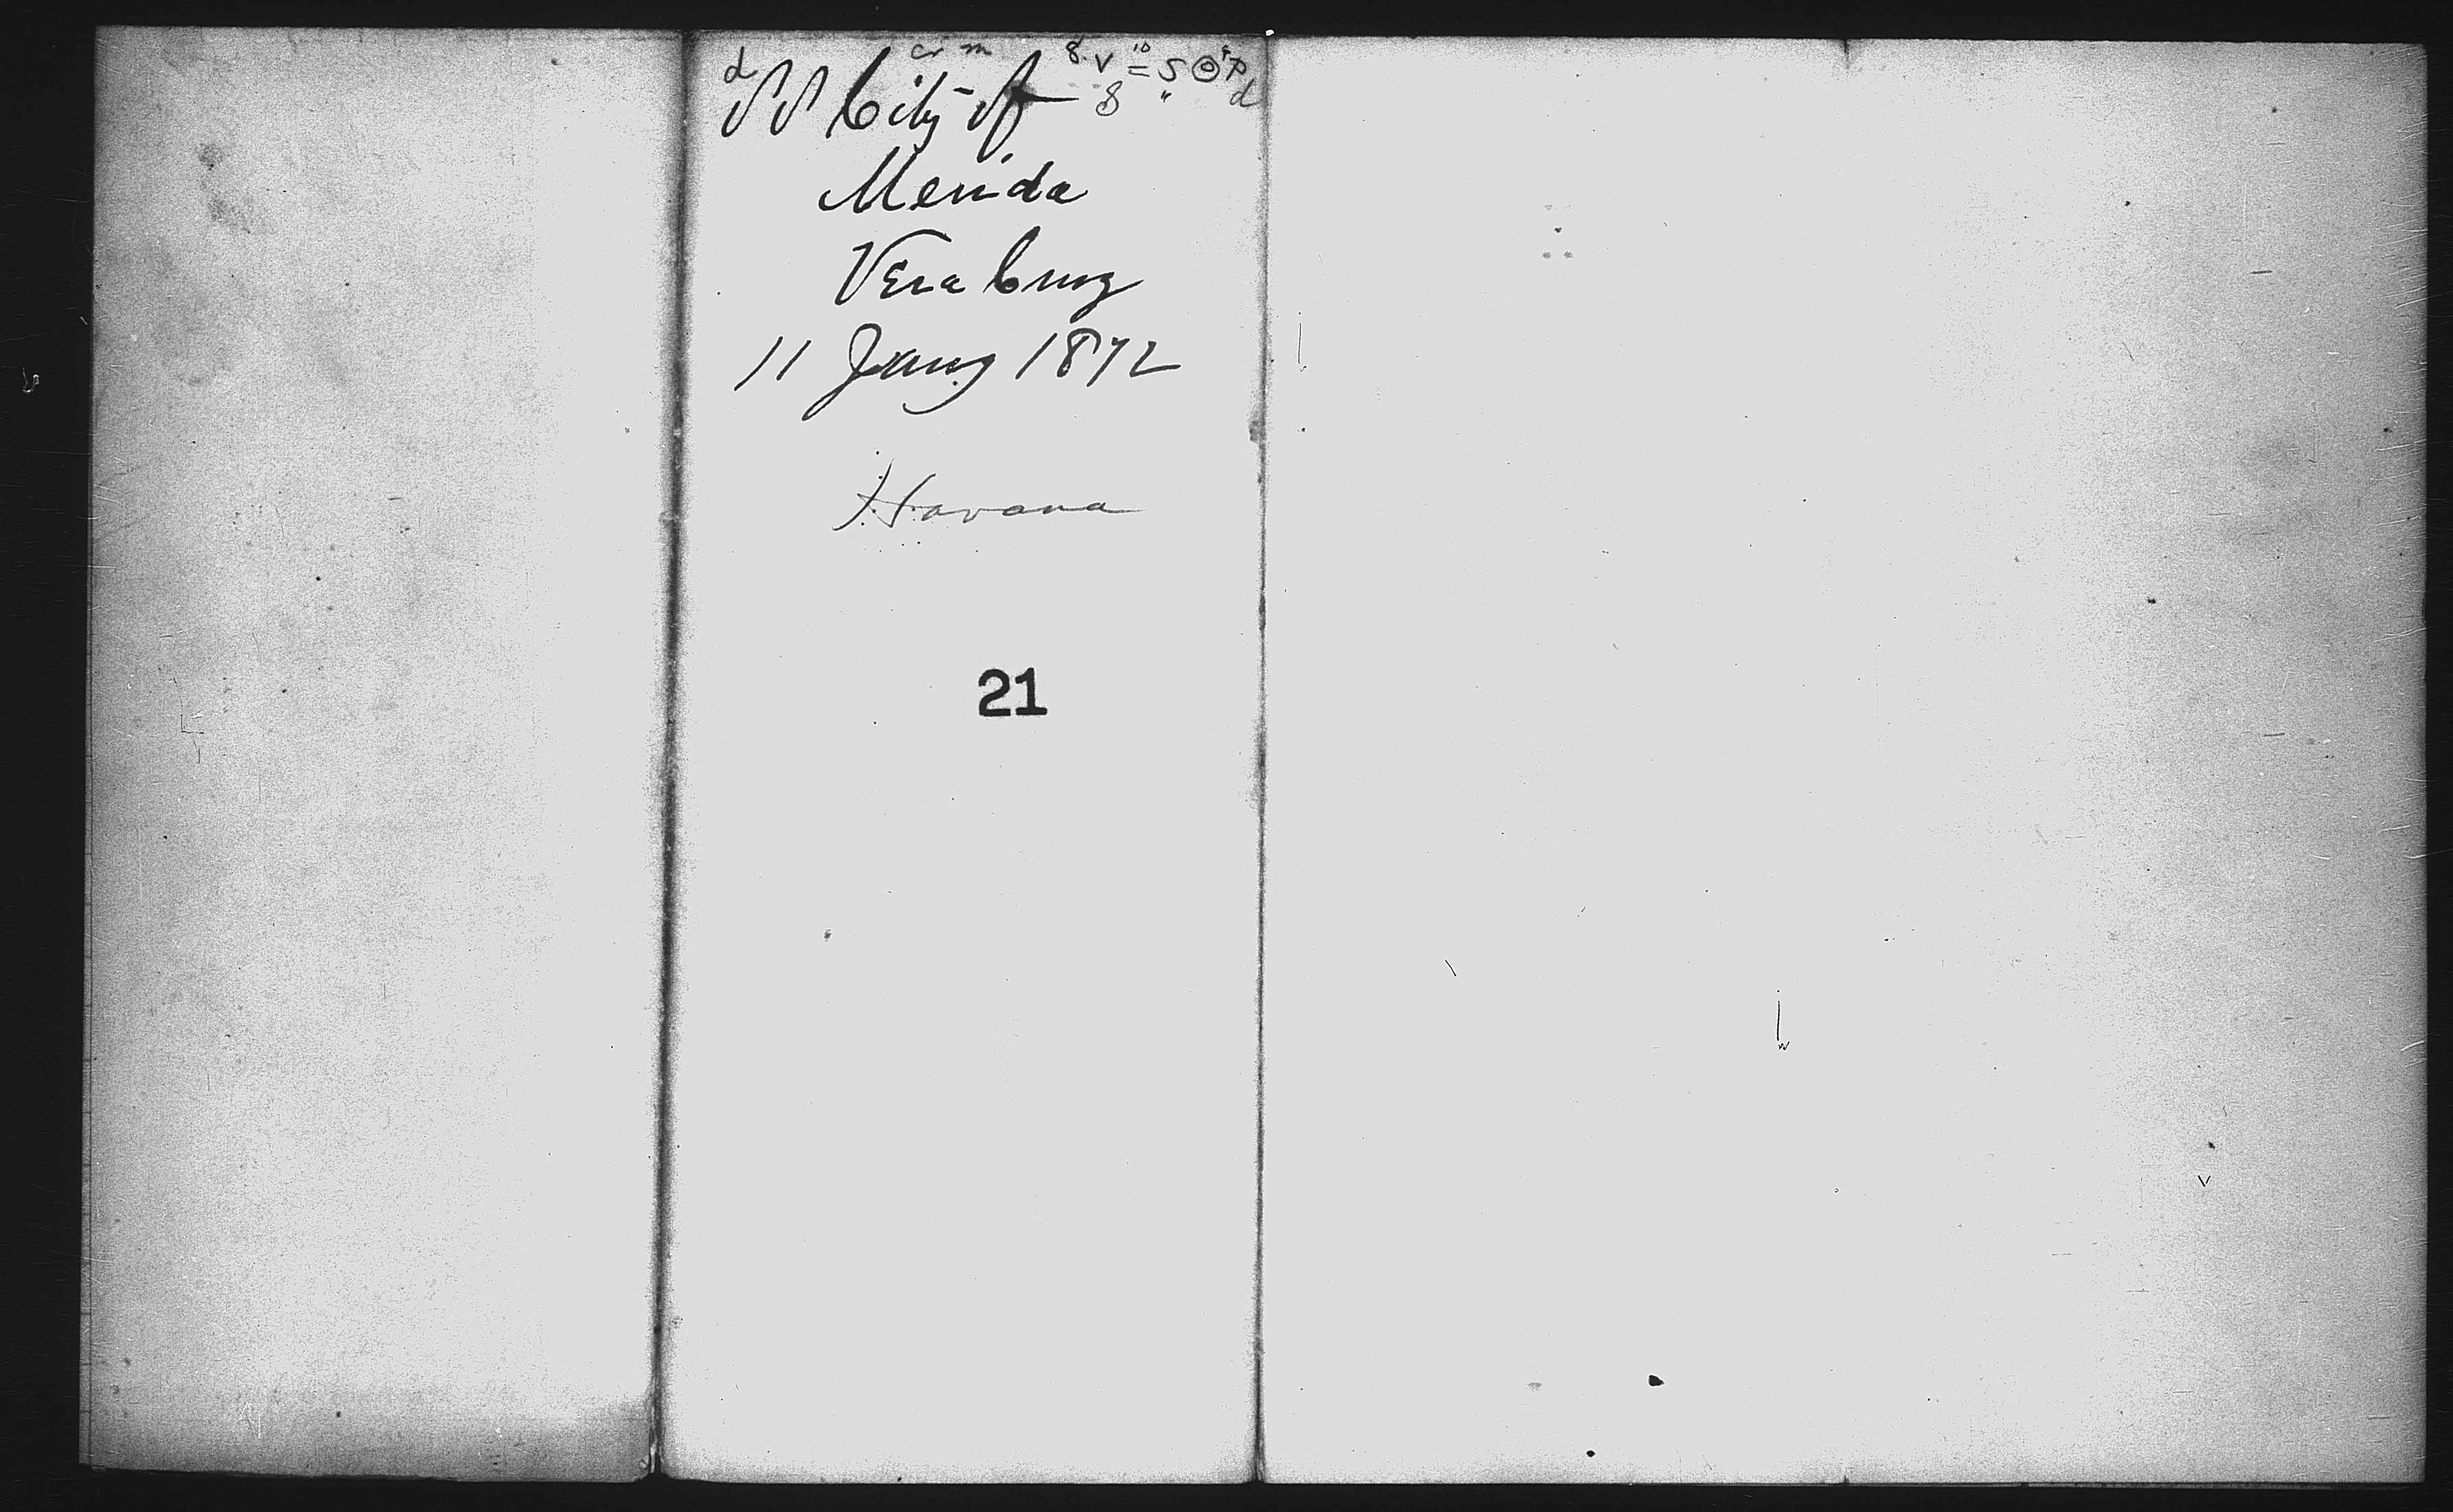 SS City of
Merida
Vera Cruz
11 Jany 1872
Havana
21